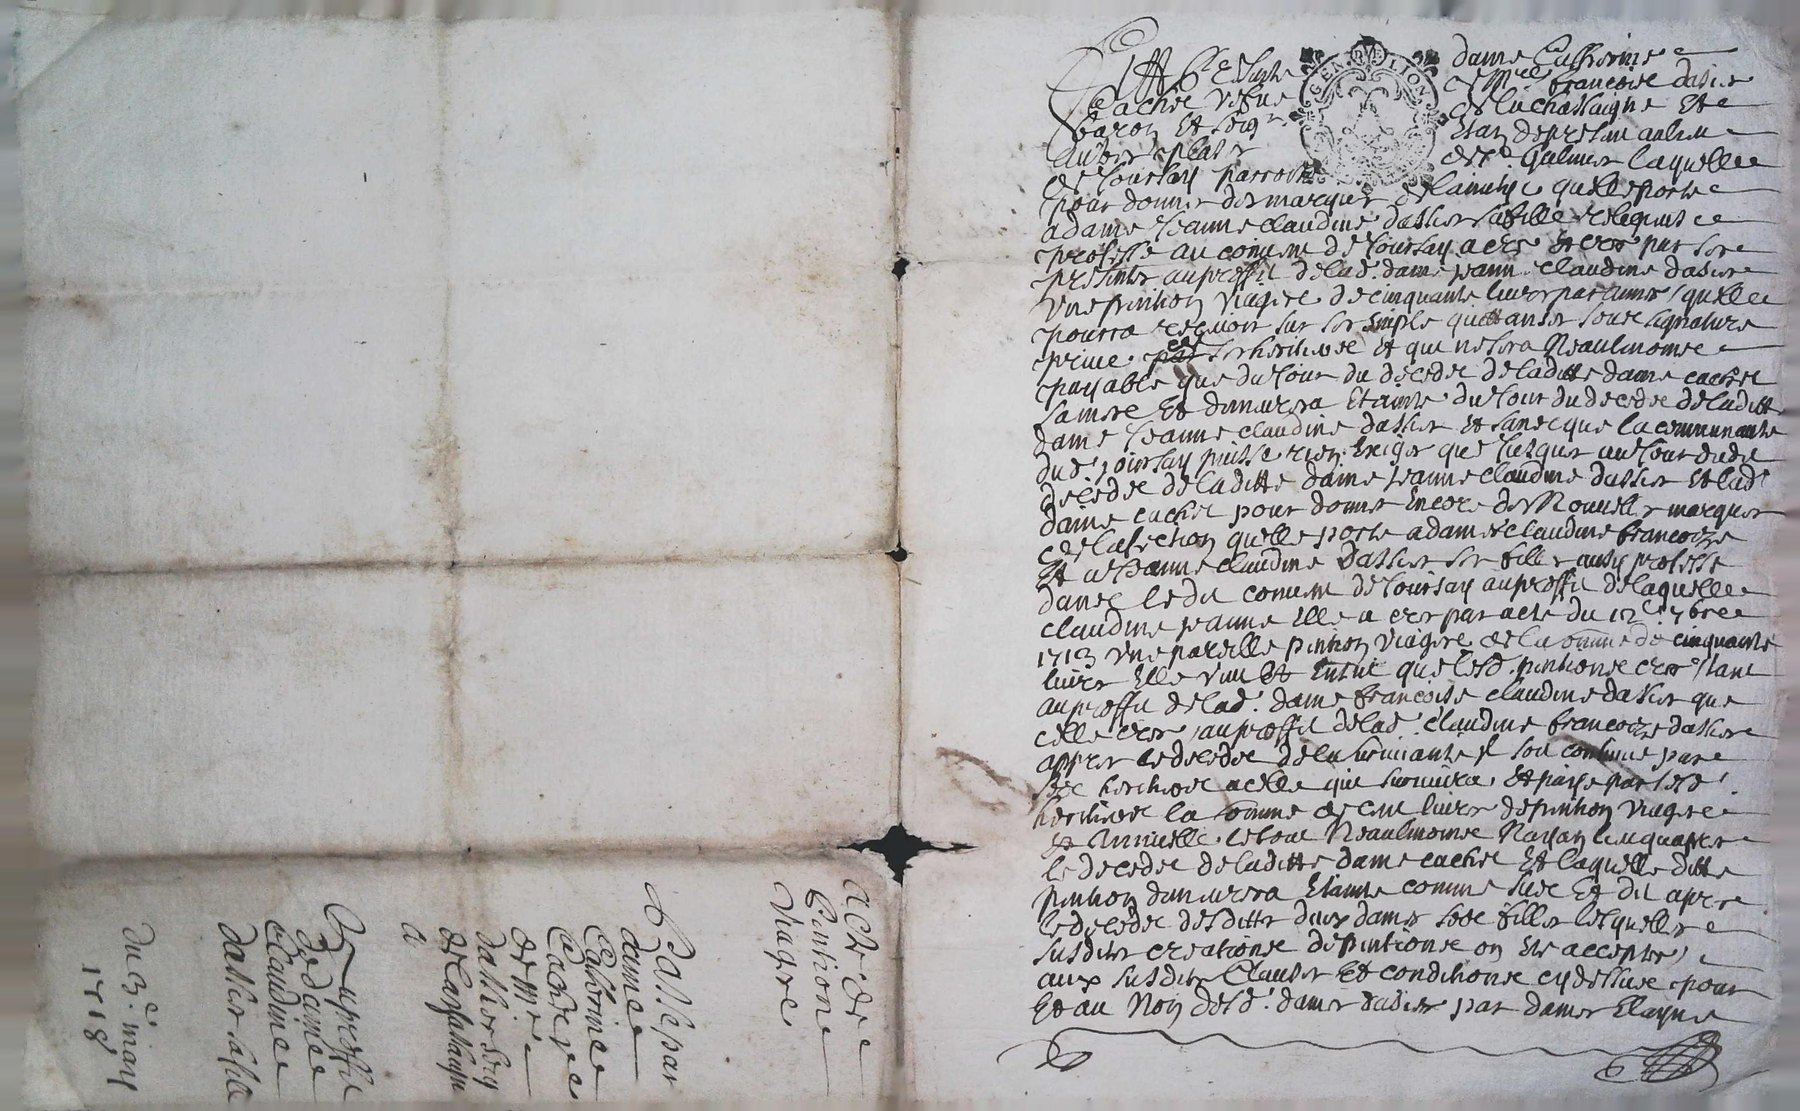 GEN DE LION
dame Catherine
Cachet vefve de Mre francois dassier
baron Et seigr de la chassaigne Et
autres places Estan de presan au lieu
de Joursay parroisse de st Galmier laquelle
pour donner des marques de lamitie quelle porte
a dame Jeanne claudine dassier sa fille relligieuse
professe au couvent de Joursay a cree et cree par ses
presentes au proffit de lad. dame jeanne claudine dassier
Une pention viagere de cinquante livres par année quelle
pourra recevoir sur ses simples quittances sous signature
privee ses heritiers et qui ne sera Neaulmoins
payable que du Jour du décedes de laditte dame cachet
sa mere Et demurera Etainte du Jour du décedes de laditte
dame Jeanne claudine dassier Et sans que la communauté
dud. joursay puisse rien Exiger que Jusques au Jour dudit
décedes de laditte dame jeanne claudine dassier Et lad.
dame cachet pour donner Encore des Nouvelles marques
de lafection quelle porte a dames claudine francoize
Et a Jeanne claudine dassier ses filles aussy professe
dans ledit couvent de Joursay au proffit de laquelle
claudine jeanne Elle a cree par acte du 12e 7bre
1713 Une pareille pention viagere de la somme de cinquante
livres Elle veut Et Entent que lesd. pentions crees tant
au proffit de lad. dame francoise claudine dassier que
celle cree au proffit de lad. claudine francoize dassier
appres le décedes de la premourante Il soit continue par
ses heritiers a celle qui survivra Et paye par lesd.
heritiers la somme de cent livres de pention viagere
Et Annuelle le tout Neaulmoins Nayan lieu quappres
le décedes de laditte dame cachet Et laquelle ditte
pention demurera Etainte comme sus Est dit apres
le décedes desdittes deux dames sses filles lesquelles
susdites creations de pentions on Ete acceptés
aux susdites Clauses Et conditions cy dessus pour
Et au Nom desd. dames dassier par dames Elayne
acte de
Pentione
Viagre
Passé par
dame
Catherine
Cachet ve
de Mre
dassier seig
de la chassaigne
a
Au proffit
de dame
Claudine
dassier sa fille
du 3e may
1718